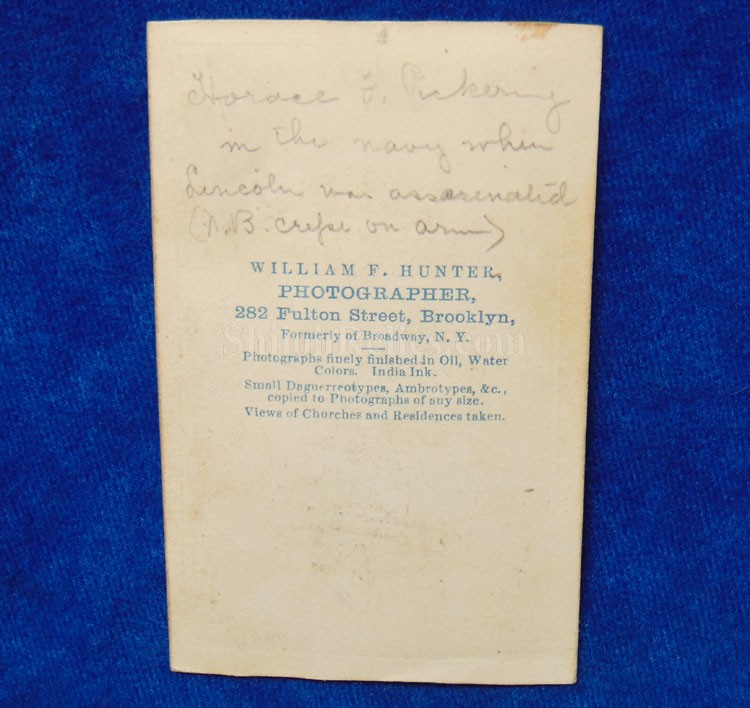 Horace F. Pickering
in the navy when
Lincoln was assasinated
(N.B. crepe on arm)
WILLIAM F. HUNTER,
PHOTOGRAPHER,
282 Fulton Street, Brooklyn,
Formerly of Broadway, N. Y.
ShilohRelics.com
Photographs finely finished in Oil, Water
Colors. India Ink.
Small Daguerreotypes, Ambrotypes, &c.,
copied to Photographs of any size.
Views of Churches and Residences taken.